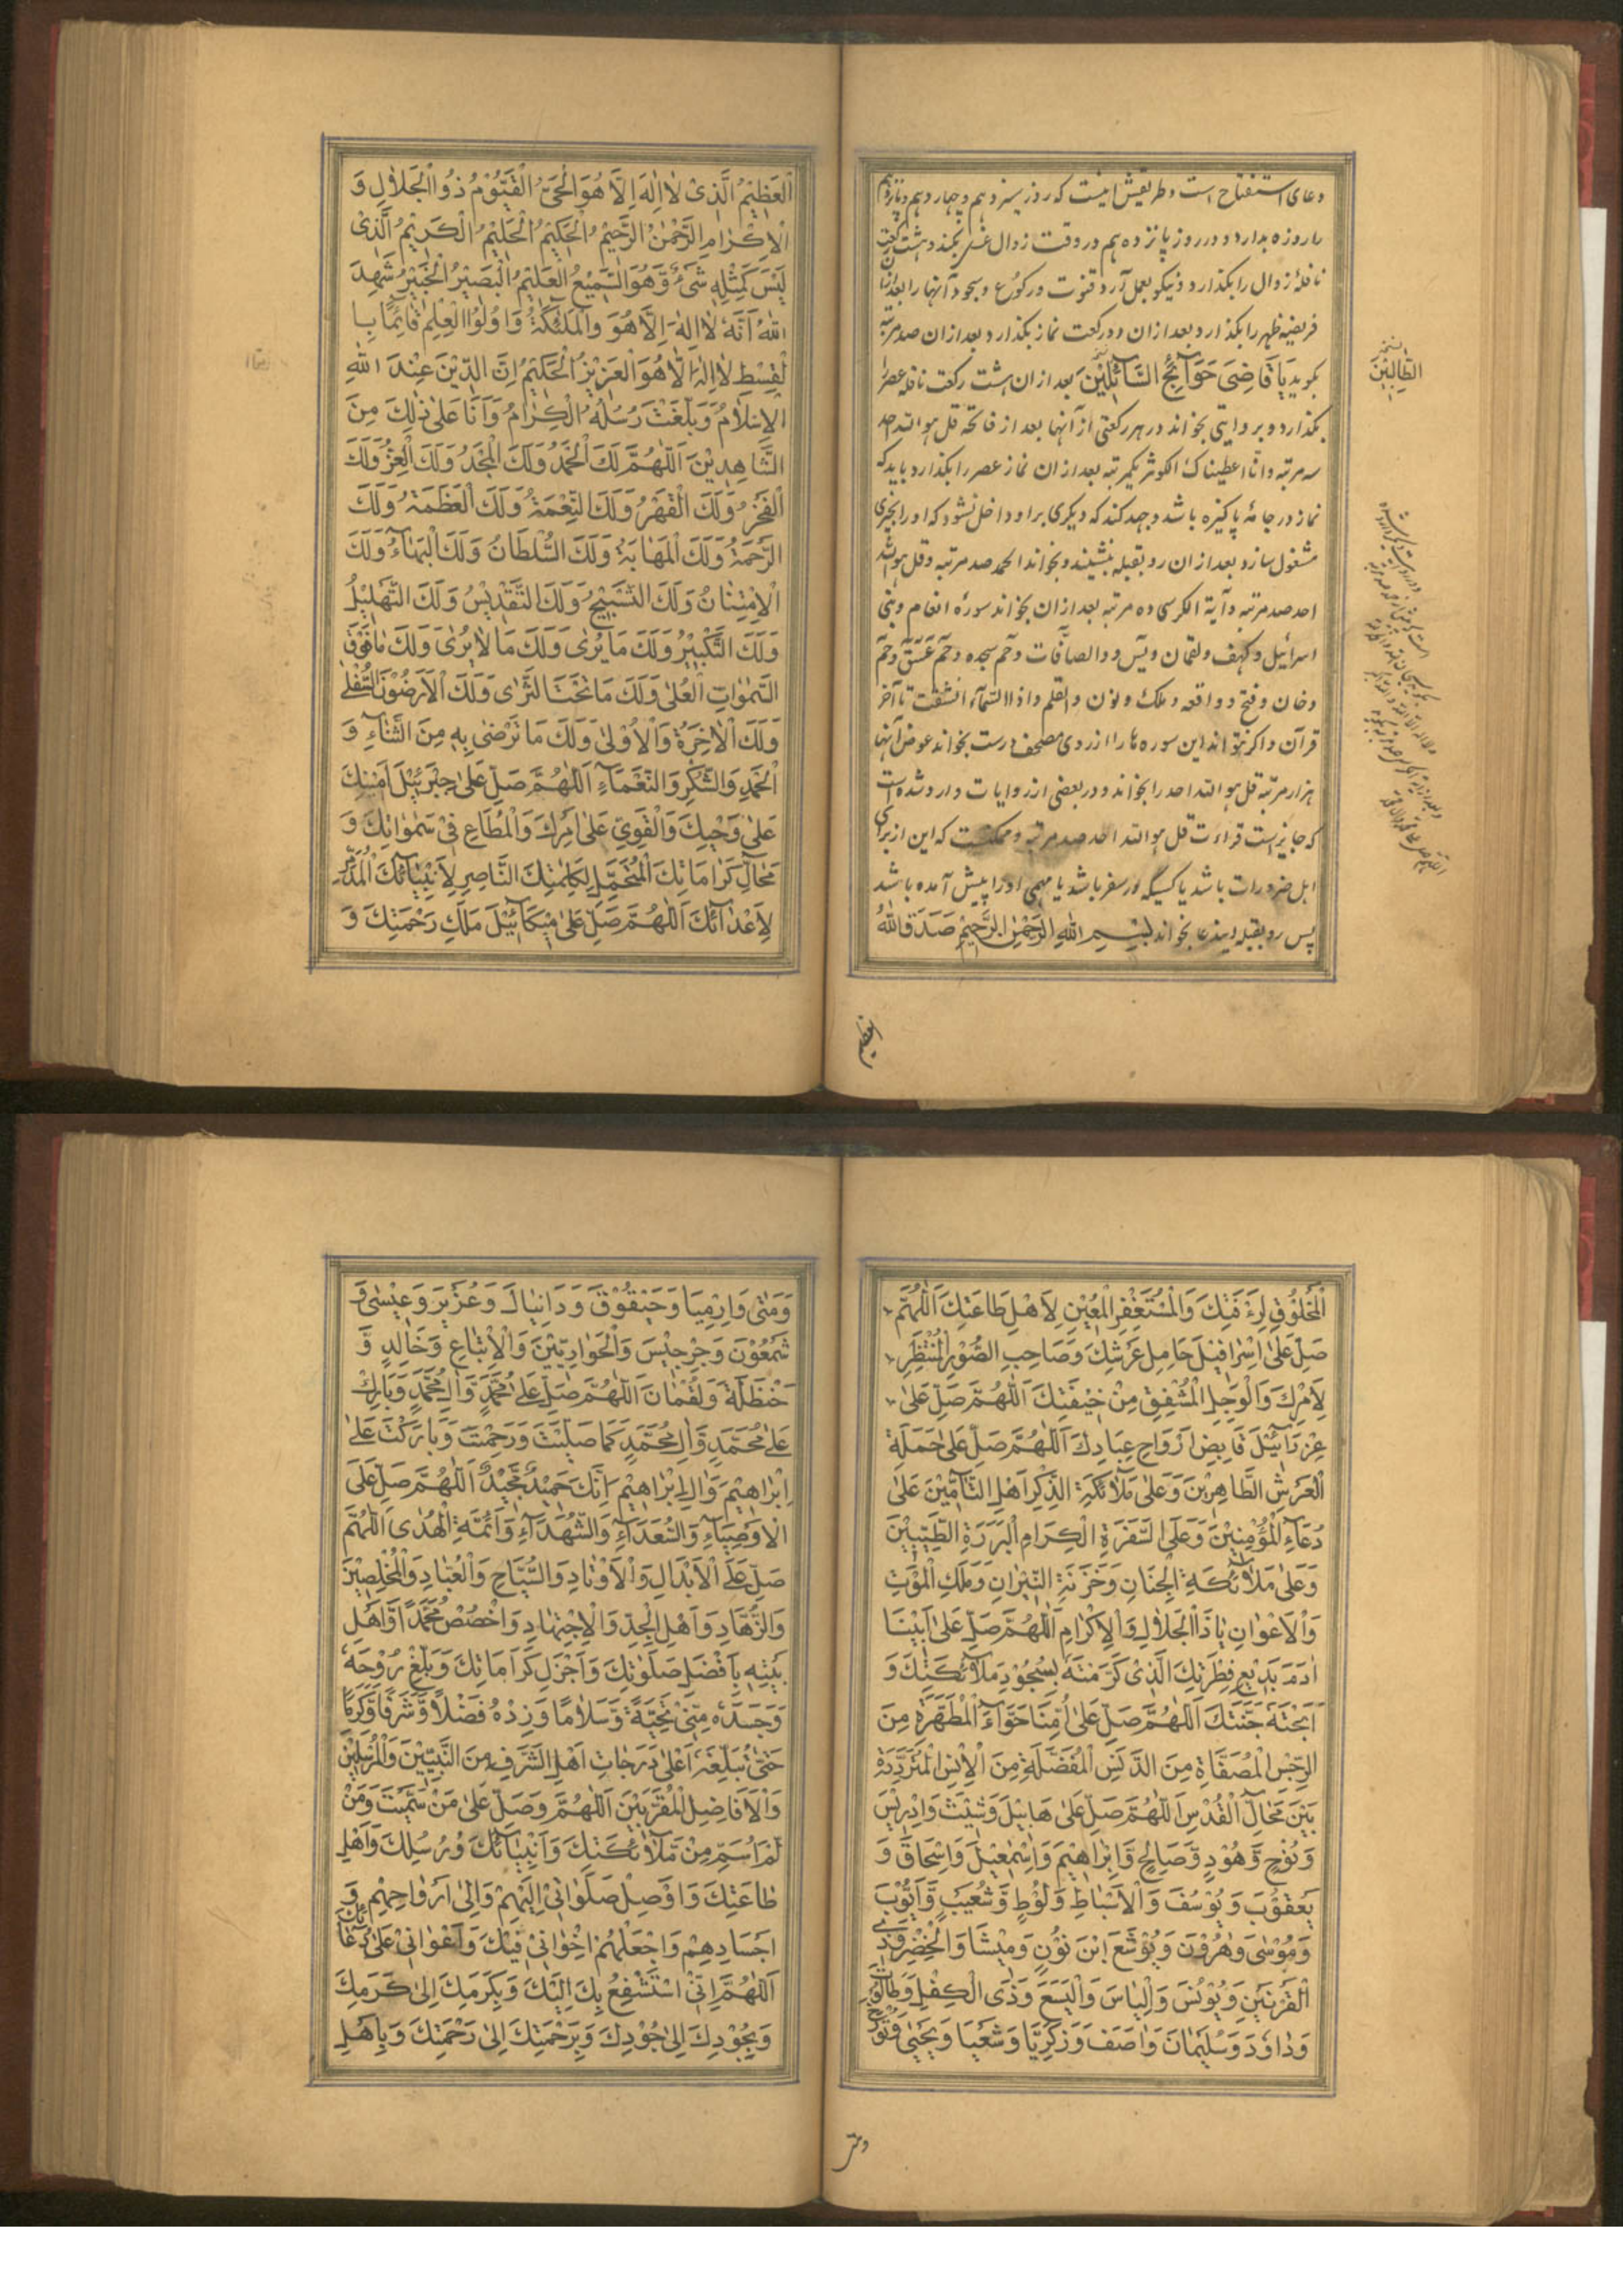 دعای استفتاح است و طریقش اینست که روز سیزدهم و چهاردهم و پانزدهم
را روزه بدارد و در روز پانزدهم در وقت زوال غسل بکند و هشت رکعت
نافلهٔ زوال را بگذارد و نیکو بعمل آرد قنوت و رکوع و سجود آنها را بعد ازان
فریضهٔ ظهر را بگذارد و بعد ازان دو رکعت نماز بگذارد و بعد ازان صد مرتبه
بگوید یَا قَاضِیَ حَوَآئِجِ السَّآئِلِیْنَ بعد ازان هشت رکعت نافلهٔ عصر را
بگذارد و بروایتی بخواند در هر رکعتی از آنها بعد از فاتحه قل هو الله احد
سه مرتبه و انّا اعطیناک الکوثر یکمرتبه بعد ازان نماز عصر را بگذارد و باید که
نماز در جامهٔ پاکیزه باشد و جهد کند که دیگری براو داخل نشود که او را بچیزی
مشغول سازد بعد ازان رو بقبله بنشیند و بخواند الحمد صد مرتبه و قل هو الله
احد صد مرتبه و آیة الکرسی ده مرتبه بعد ازان بخواند سورهٔ انعام و بنی
اسرآئیل و کهف و لقمان و یس و والصآفّات و حم سجده و حم عسق و حم
دخان و فتح و واقعه و ملک و نون و القلم و اذا السّمآء انشقّت تا آخر
قرآن و اگر نتواند این سوره ها را از روی مصحف درست بخواند عوض آنها
هزار مرتبه قل هو الله احد را بخواند و در بعضی از روایات وارد شده است
که جایز است قراءت قل هو الله احد صد مرتبه و ممکنست که این از برای
اهل ضرورات باشد یا کسیکه در سفر باشد یا مهمی او را پیش آمده باشد
پس رو بقبله ایندعا بخواند بِسْمِ اللهِ الرَّحْمٰنِ الرَّحِیْمِ صَدَقَ اللهُ
الطَّالِبِیْنَ
الْعَظِیْمُ الَّذِیْ لَا اِلٰهَ اِلَّا هُوَ الْحَیُّ الْقَیُّوْمُ ذُو الْجَلَالِ وَ
الْاِکْرَامِ الرَّحْمٰنُ الرَّحِیْمُ الْحَکِیْمُ الْحَلِیْمُ الْکَرِیْمُ الَّذِیْ
لَیْسَ کَمِثْلِهٖ شَیْءٌ وَّهُوَ السَّمِیْعُ الْعَلِیْمُ الْبَصِیْرُ الْخَبِیْرُ شَهِدَ
اللهُ اَنَّهٗ لَا اِلٰهَ اِلَّا هُوَ وَالْمَلٰٓئِکَةُ وَاُولُوا الْعِلْمِ قَآئِمًا بِا
لْقِسْطِ لَا اِلٰهَ اِلَّا هُوَ الْعَزِیْزُ الْحَکِیْمُ اِنَّ الدِّیْنَ عِنْدَ اللهِ
الْاِسْلَامُ وَبَلَّغَتْ رُسُلُهُ الْکِرَامُ وَاَنَا عَلٰی ذٰلِکَ مِنَ
الشَّاهِدِیْنَ اَللّٰهُمَّ لَکَ الْحَمْدُ وَلَکَ الْمَجْدُ وَلَکَ الْعِزُّ وَلَکَ
الْفَخْرُ وَلَکَ الْقَهْرُ وَلَکَ النِّعْمَةُ وَلَکَ الْعَظَمَةُ وَلَکَ
الرَّحْمَةُ وَلَکَ الْمَهَابَةُ وَلَکَ السُّلْطَانُ وَلَکَ الْبَهَآءُ وَلَکَ
الْاِمْتِنَانُ وَلَکَ التَّسْبِیْحُ وَلَکَ التَّقْدِیْسُ وَلَکَ التَّهْلِیْلُ
وَلَکَ التَّکْبِیْرُ وَلَکَ مَا یُرٰی وَلَکَ مَا لَا یُرٰی وَلَکَ مَا فَوْقَ
السَّمٰوٰاتِ الْعُلٰی وَلَکَ مَا تَحْتَ الثَّرٰی وَلَکَ الْاَرَضُوْنَ السُّفْلٰی
وَلَکَ الْاٰخِرَةُ وَالْاُوْلٰی وَلَکَ مَا تَرْضٰی بِهٖ مِنَ الثَّنَآءِ وَ
الْحَمْدِ وَالشُّکْرِ وَالنَّعْمَآءِ اَللّٰهُمَّ صَلِّ عَلٰی جِبْرَئِیْلَ اَمِیْنِکَ
عَلٰی وَحْیِکَ وَالْقَوِیِّ عَلٰی اَمْرِکَ وَالْمُطَاعِ فِیْ سَمٰوٰاتِکَ وَ
مَحَالِّ کَرَامَاتِکَ الْمُتَحَمِّلِ لِکَلِمَاتِکَ النَّاصِرِ لِاَنْبِیَآئِکَ الْمُدَمِّرِ
لِاَعْدَآئِکَ اَللّٰهُمَّ صَلِّ عَلٰی مِیْکَآئِیْلَ مَلَکِ رَحْمَتِکَ وَ
الْمَخْلُوْقِ لِرَءْفَتِکَ وَالْمُسْتَغْفِرِ الْمُعِیْنِ لِاَهْلِ طَاعَتِکَ اَللّٰهُمَّ
صَلِّ عَلٰی اِسْرَافِیْلَ حَامِلِ عَرْشِکَ وَصَاحِبِ الصُّوْرِ الْمُنْتَظِرِ
لِاَمْرِکَ وَالْوَجِلِ الْمُشْفِقِ مِنْ خِیْفَتِکَ اَللّٰهُمَّ صَلِّ عَلٰی
عِزْرَآئِیْلَ قَابِضِ اَرْوَاحِ عِبَادِکَ اَللّٰهُمَّ صَلِّ عَلٰی حَمَلَةِ
الْعَرْشِ الطَّاهِرِیْنَ وَعَلٰی مَلٰٓئِکَةِ الذِّکْرِ اَهْلِ التَّاْمِیْنَ عَلٰی
دُعَآءِ الْمُؤْمِنِیْنَ وَعَلَی السَّفَرَةِ الْکِرَامِ الْبَرَرَةِ الطَّیِّبِیْنَ
وَعَلٰی مَلٰٓئِکَةِ الْجِنَانِ وَخَزَنَةِ النِّیْرَانِ وَمَلَکِ الْمَوْتِ
وَالْاَعْوَانِ یَا ذَا الْجَلَالِ وَالْاِکْرَامِ اَللّٰهُمَّ صَلِّ عَلٰی اَبِیْنَا
اٰدَمَ بَدِیْعِ فِطْرَتِکَ الَّذِیْ کَرَّمْتَهٗ بِسُجُوْدِ مَلٰٓئِکَتِکَ وَ
اَبَحْتَهٗ جَنَّتَکَ اَللّٰهُمَّ صَلِّ عَلٰی اُمِّنَا حَوَّآءَ الْمُطَهَّرَةِ مِنَ
الرِّجْسِ الْمُصَفَّاةِ مِنَ الدَّنَسِ الْمُفَضَّلَةِ مِنَ الْاِنْسِ الْمُتَرَدِّدَةِ
بَیْنَ مَحَآلِّ الْقُدْسِ اَللّٰهُمَّ صَلِّ عَلٰی هَابِیْلَ وَشِیْثَ وَاِدْرِیْسَ
وَنُوْحٍ وَّهُوْدٍ وَّصَالِحٍ وَّاِبْرَاهِیْمَ وَاِسْمٰعِیْلَ وَاِسْحَاقَ وَ
یَعْقُوْبَ وَیُوْسُفَ وَالْاَسْبَاطِ وَلُوْطٍ وَّشُعَیْبٍ وَّاَیُّوْبَ
وَمُوْسٰی وَهٰرُوْنَ وَیُوْشَعَ ابْنَ نُوْنٍ وَمِیْشَا وَالْخِضْرِ وَذِی
الْقَرْنَیْنِ وَیُوْنُسَ وَاِلْیَاسَ وَالْیَسَعَ وَذِی الْکِفْلِ وَطَالُوْتَ
وَدَاوٗدَ وَسُلَیْمَانَ وَاٰصَفَ وَزَکَرِیَّا وَشَعْیَا وَیَحْیٰی وَتُوْرَخَ
وَمَتّٰی وَاِرْمِیَا وَحَبَقُوْقَ وَدَانِیَالَ وَعُزَیْرَ وَعِیْسٰی وَ
شَمْعُوْنَ وَجِرْجِیْسَ وَالْحَوَارِیِّیْنَ وَالْاَتْبَاعِ وَخَالِدٍ وَّ
حَنْظَلَةَ وَلُقْمَانَ اَللّٰهُمَّ صَلِّ عَلٰی مُحَمَّدٍ وَّاٰلِ مُحَمَّدٍ وَّبَارِکْ
عَلٰی مُحَمَّدٍ وَّاٰلِ مُحَمَّدٍ کَمَا صَلَّیْتَ وَرَحِمْتَ وَبَارَکْتَ عَلٰی
اِبْرَاهِیْمَ وَاٰلِ اِبْرَاهِیْمَ اِنَّکَ حَمِیْدٌ مَّجِیْدٌ اَللّٰهُمَّ صَلِّ عَلَی
الْاَوْصِیَآءِ وَالسُّعَدَآءِ وَالشُّهَدَآءِ وَاَئِمَّةِ الْهُدٰی اَللّٰهُمَّ
صَلِّ عَلَی الْاَبْدَالِ وَالْاَوْتَادِ وَالسُّیَّاحِ وَالْعُبَّادِ وَالْمُخْلِصِیْنَ
وَالزُّهَّادِ وَاَهْلِ الْجِدِّ وَالْاِجْتِهَادِ وَاخْصُصْ مُحَمَّدًا وَّاَهْلَ
بَیْتِهٖ بِاَفْضَلِ صَلَوٰتِکَ وَاَجْزَلِ کَرَامَاتِکَ وَبَلِّغْ رُوْحَهٗ
وَجَسَدَهٗ مِنِّیْ تَحِیَّةً وَّسَلَامًا وَزِدْهُ فَضْلًا وَّشَرَفًا وَّکَرَمًا
حَتّٰی تُبَلِّغَهٗ اَعْلٰی دَرَجَاتِ اَهْلِ الشَّرَفِ مِنَ النَّبِیِّیْنَ وَالْمُرْسَلِیْنَ
وَالْاَفَاضِلِ الْمُقَرَّبِیْنَ اَللّٰهُمَّ وَصَلِّ عَلٰی مَنْ سَمَّیْتُ وَمَنْ
لَّمْ اُسَمِّ مِنْ مَّلٰٓئِکَتِکَ وَاَنْبِیَآئِکَ وَرُسُلِکَ وَاَهْلِ
طَاعَتِکَ وَاَوْصِلْ صَلَوَاتِیْ اِلَیْهِمْ وَاِلٰی اَرْوَاحِهِمْ وَ
اَجْسَادِهِمْ وَاجْعَلْهُمْ اِخْوَانِیْ فِیْکَ وَاَعْوَانِیْ عَلٰی دُعَآئِکَ
اَللّٰهُمَّ اِنِّیْ اَسْتَشْفِعُ بِکَ اِلَیْکَ وَبِکَرَمِکَ اِلٰی کَرَمِکَ
وَبِجُوْدِکَ اِلٰی جُوْدِکَ وَبِرَحْمَتِکَ اِلٰی رَحْمَتِکَ وَبِاَهْلِ